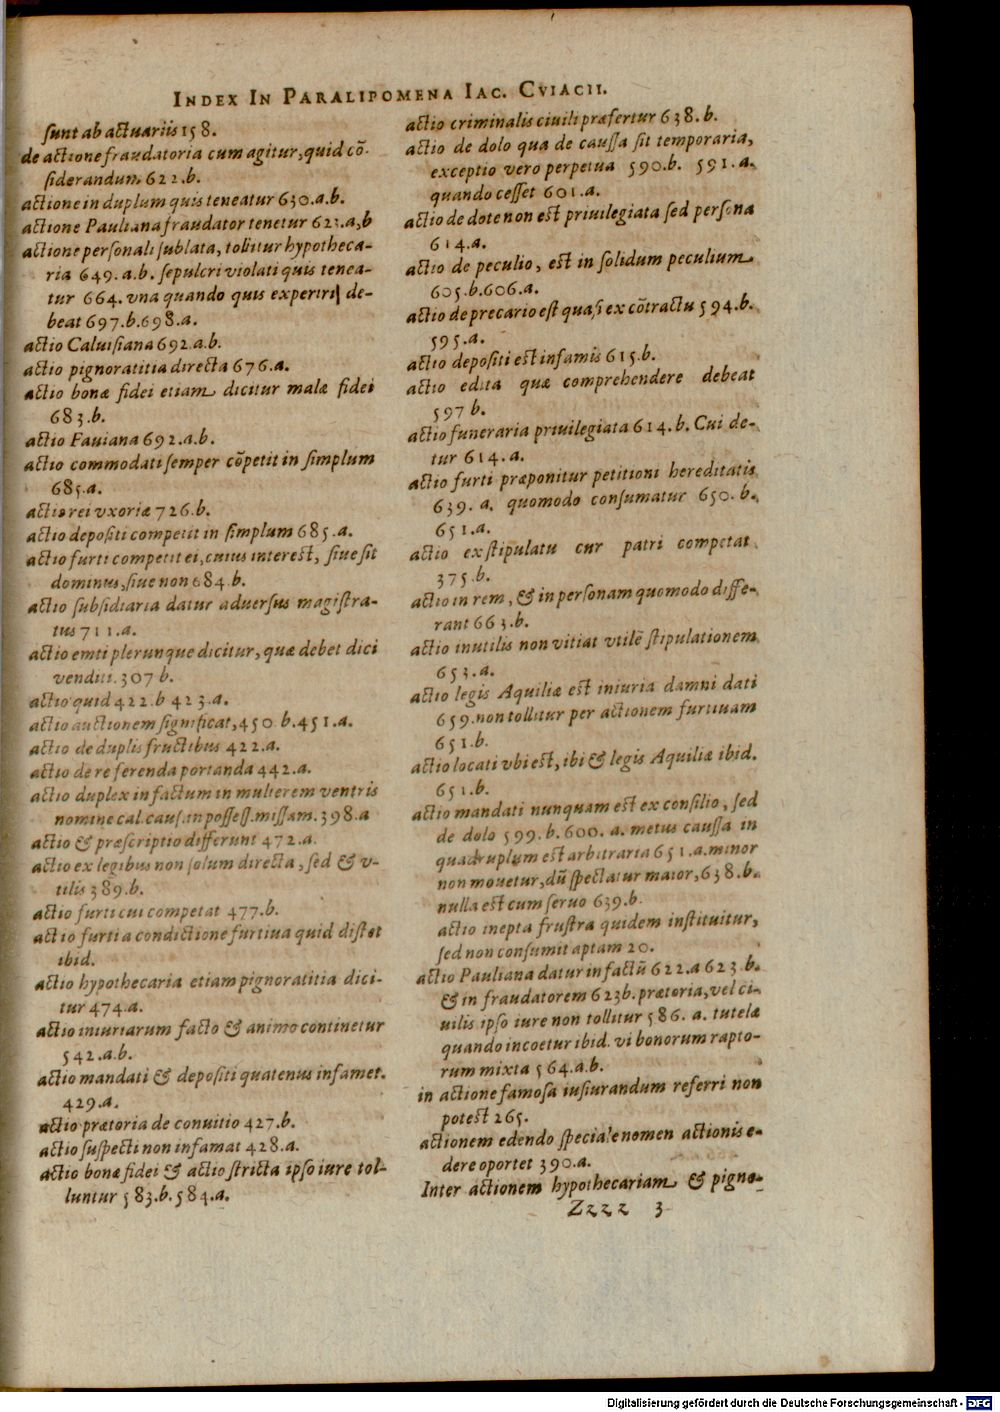 INDEX IN PARALIPOMENA IAC. CVIACII.
sunt ab actuariis 158.
de actione fraudatoria cum agitur, quid cō-
siderandum 622.b.
actione in duplum quis teneatur 630.a.b.
actione Pauliana fraudator tenetur 623.a,b
actione personali sublata, tollitur hypotheca-
ria 649. a.b. sepulcri violati quis tenea-
tur 664. vna quando quis experiri de-
beat 697.b.698.a.
actio Caluisiana 692.a.b.
actio pignoratitia directa 676.a.
actio bonæ fidei etiam dicitur malæ fidei
683.b.
actio Fauiana 692.a.b.
actio commodati semper cōpetit in simplum
685.a.
actio rei vxoriæ 726.b.
actio depositi competit in simplum 685.a.
actio furti competit ei, cuius interest, siue sit
dominus, siue non 684.b.
actio subsidiaria datur aduersus magistra-
tus 711.a.
actio emti plerunque dicitur, quæ debet dici
venditi.307 b.
actio quid 422.b 423.a.
actio auctionem significat,450.b.451.a.
actio de duplis fructibus 422.a.
actio de re ferenda portanda 442.a.
actio duplex in factum in mulierem ventris
nomine cal.caus.in possess.missam.398.a
actio & præscriptio differunt 472.a.
actio ex legibus non solum directa, sed & v-
tilis 389.b.
actio furti cui competat 477.b.
actio furti a condictione furtiua quid distet
ibid.
actio hypothecaria etiam pignoratitia dici-
tur 474.a.
actio iniuriarum facto & animo continetur
542.a.b.
actio mandati & depositi quatenus infamet.
429.a.
actio prætoria de conuitio 427.b.
actio suspecti non infamat 428.a.
actio bonæ fidei & actio stricta ipso iure tol-
luntur 583.b.584.a.
actio criminalis ciuili præfertur 638.b.
actio de dolo qua de caussa sit temporaria,
exceptio vero perpetua 590.b. 591.a.
quando cesset 601.a.
actio de dote non est priuilegiata sed persona
614.a.
actio de peculio, est in solidum peculium
605.b.606.a.
actio de precario est quasi ex cōtractu 594.b.
595.a.
actio depositi est infamis 615.b.
actio edita quæ comprehendere debeat
597 b.
actio funeraria priuilegiata 614.b. Cui de-
tur 614.a.
actio furti præponitur petitioni hereditatis
639. a. quomodo consumatur 650.b.
651.a.
actio ex stipulatu cur patri competat
375.b.
actio in rem, & in personam quomodo diffe-
rant 663.b.
actio inutilis non vitiat vtilē stipulationem
653.a.
actio legis Aquiliæ est iniuria damni dati
659.non tollitur per actionem furtiuam
651.b.
actio locati vbi est, ibi & legis Aquiliæ ibid.
651.b.
actio mandati nunquam est ex consilio, sed
de dolo 599.b.600. a. metus caussa in
quadruplum est arbitraria 651.a.minor
non mouetur, dū spectatur maior, 638.b.
nulla est cum seruo 639.b.
actio inepta frustra quidem instituitur,
sed non consumit aptam 20.
actio Pauliana datur in factū 622.a 623.b.
& in fraudatorem 623b. prætoria, vel ci-
uilis ipso iure non tollitur 586. a. tutelæ
quando incoetur ibid. vi bonorum rapto-
rum mixta 564.a.b.
in actione famosa iusiurandum referri non
potest 265.
actionem edendo speciale nomen actionis e-
dere oportet 390.a.
Inter actionem hypothecariam & pigno-
Zzzz 3
Digitalisierung gefördert durch die Deutsche Forschungsgemeinschaft - DFG